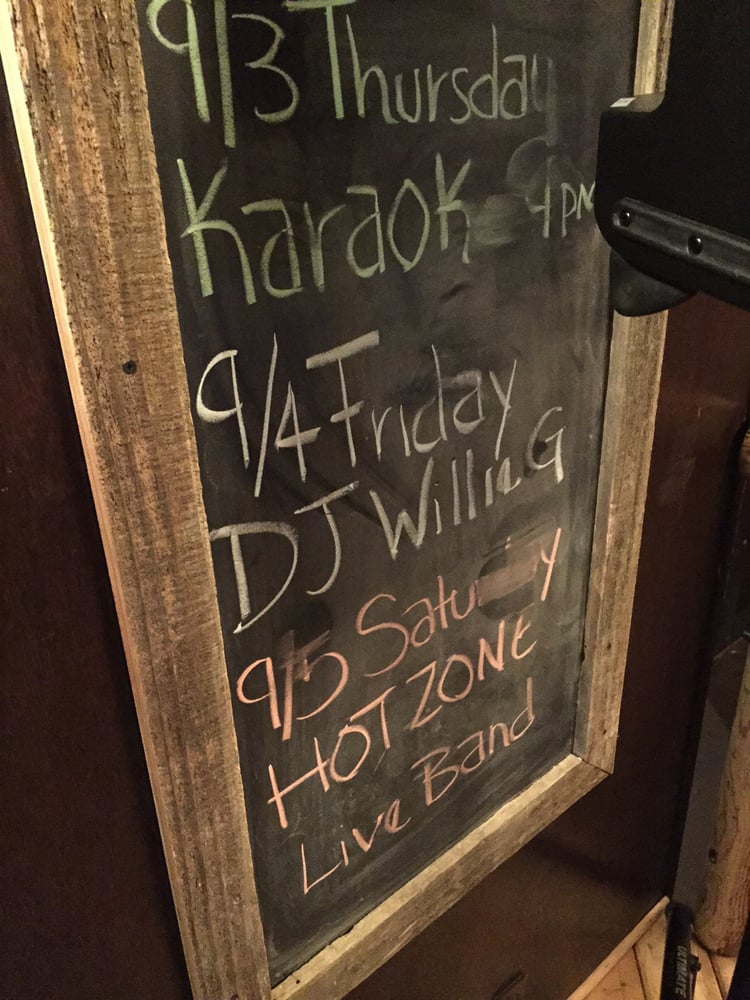 9/3 Thursday
Karaok PM
9/4 Friday
DJ Willie G
9/5 Satu y
HOT ZONE
Live Band
ULTIMATE